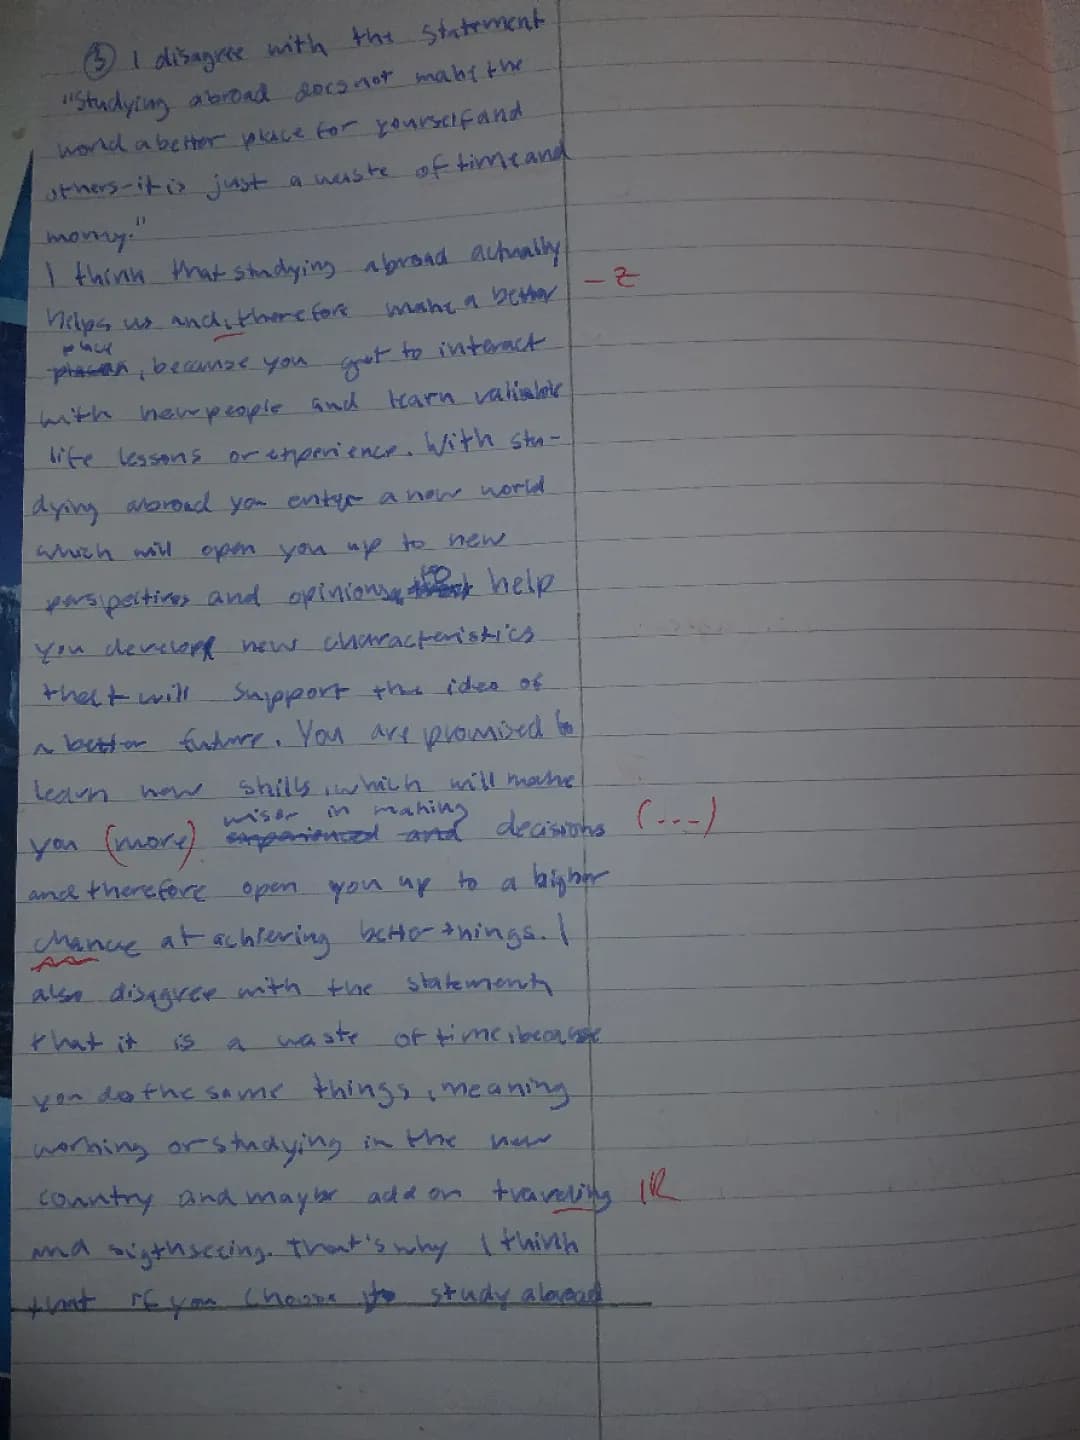 ③ I disagree with the statement
"Studying abroad does not make the
world a better place for yourself and
others-it is just a waste of time and
money."
I think that studying abroad actually
helps us and, therefore make a better - Z
place
, because you get to interact
with new people and learn valiable
life lessons or experience. With stu-
dying abroad you enter a new world
which will open you up to new
perspectives and opinions, to help
you develope new characteristics
that will support the idea of
a better future. You are promised to
learn new skills, which will make
wiser in making
you (more) experienced and decisions (---)
and therefore open you up to a higher
chance at achieving better things. I
also disagree with the statement,
that it is a waste of time, because
you do the same things, meaning
working or studying in the new
country and maybe add on traveling IR
and sigthseeing. That's why I think
that if you choose to study abroad